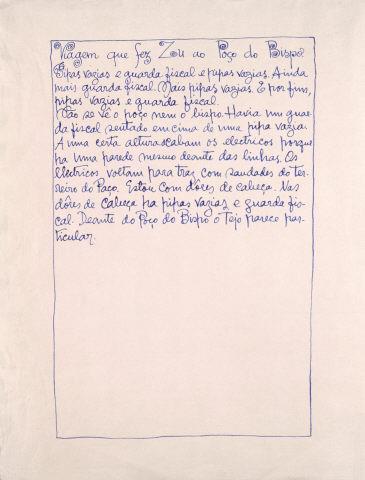 Viagem que fez Zou ao Poço do Bispo.
Pipas vazias e guarda fiscal e pipas vazias. Ainda
mais guarda fiscal. Mais pipas vazias. E por fim,
pipas vazias e guarda fiscal.
Não se vê o poço nem o bispo. Havia um guar-
da fiscal sentado em cima de uma pipa vazia.
A uma certa altura acabam os electricos porque
ha uma parede mesmo deante das linhas. Os
electricos voltam para traz com saudades do ter-
reiro do Paço. Estou com dôres de cabeça. Nas
dôres de cabeça ha pipas vazias e guarda fis-
cal. Deante do Poço do Bispo o Tejo parece par-
ticular.